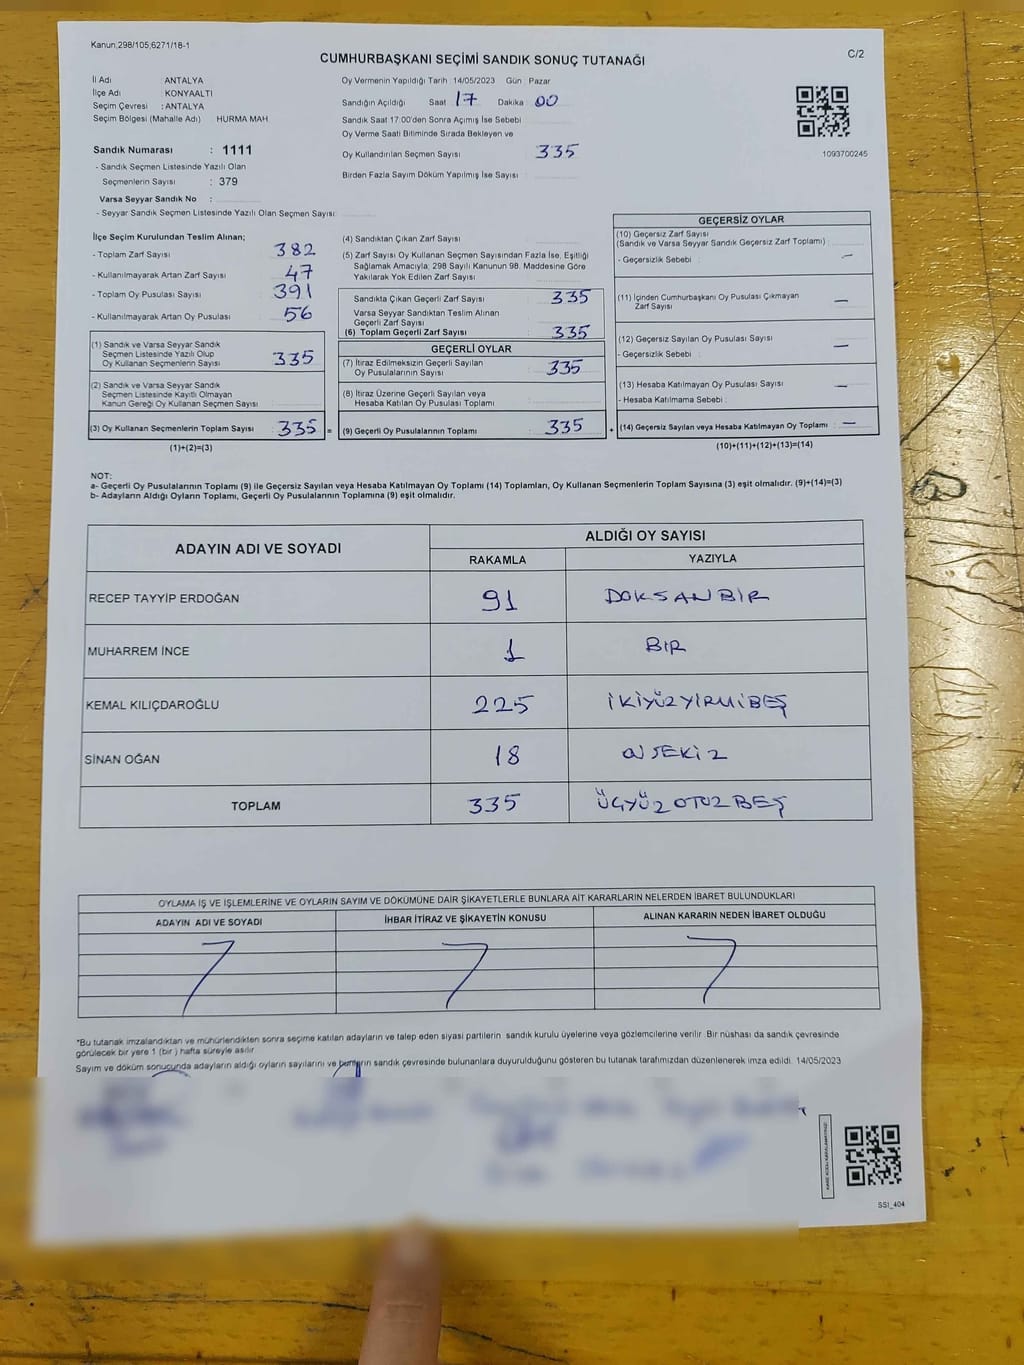 Kanun;298/105;6271/18-1
CUMHURBAŞKANI SEÇİMİ SANDIK SONUÇ TUTANAĞI
C/2
İl Adı ANTALYA
İlçe Adı KONYAALTI
Seçim Çevresi : ANTALYA
Seçim Bölgesi (Mahalle Adı) HURMA MAH.
Sandık Numarası : 1111
- Sandık Seçmen Listesinde Yazılı Olan
Seçmenlerin Sayısı : 379
Varsa Seyyar Sandık No :
- Seyyar Sandık Seçmen Listesinde Yazılı Olan Seçmen Sayısı:
Oy Vermenin Yapıldığı Tarih : 14/05/2023 Gün : Pazar
Sandığın Açıldığı Saat 17 Dakika : 00
Sandık Saat 17:00'den Sonra Açımış İse Sebebi
Oy Verme Saati Bitiminde Sırada Bekleyen ve
Oy Kullandırılan Seçmen Sayısı : 335
Birden Fazla Sayım Döküm Yapılmış İse Sayısı :
1093700245
İlçe Seçim Kurulundan Teslim Alınan;
- Toplam Zarf Sayısı : 382
- Kullanılmayarak Artan Zarf Sayısı : 47
- Toplam Oy Pusulası Sayısı : 391
- Kullanılmayarak Artan Oy Pusulası : 56
(1) Sandık ve Varsa Seyyar Sandık
Seçmen Listesinde Yazılı Olup
Oy Kullanan Seçmenlerin Sayısı : 335
(2) Sandık ve Varsa Seyyar Sandık
Seçmen Listesinde Kayıtlı Olmayan
Kanun Gereği Oy Kullanan Seçmen Sayısı :
(3) Oy Kullanan Seçmenlerin Toplam Sayısı : 335 =
(1)+(2)=(3)
(4) Sandıktan Çıkan Zarf Sayısı :
(5) Zarf Sayısı Oy Kullanan Seçmen Sayısından Fazla İse, Eşitliği
Sağlamak Amacıyla; 298 Sayılı Kanunun 98. Maddesine Göre
Yakılarak Yok Edilen Zarf Sayısı :
Sandıkta Çıkan Geçerli Zarf Sayısı : 335
Varsa Seyyar Sandıktan Teslim Alınan
Geçerli Zarf Sayısı :
(6) Toplam Geçerli Zarf Sayısı : 335
GEÇERLİ OYLAR
(7) İtiraz Edilmeksizin Geçerli Sayılan
Oy Pusulalarının Sayısı : 335
(8) İtiraz Üzerine Geçerli Sayılan veya
Hesaba Katılan Oy Pusulası Toplamı :
(9) Geçerli Oy Pusulalarının Toplamı : 335 +
GEÇERSİZ OYLAR
(10) Geçersiz Zarf Sayısı
(Sandık ve Varsa Seyyar Sandık Geçersiz Zarf Toplamı) :
- Geçersizlik Sebebi : —
(11) İçinden Cumhurbaşkanı Oy Pusulası Çıkmayan
Zarf Sayısı : —
(12) Geçersiz Sayılan Oy Pusulası Sayısı : —
- Geçersizlik Sebebi :
(13) Hesaba Katılmayan Oy Pusulası Sayısı : —
- Hesaba Katılmama Sebebi :
(14) Geçersiz Sayılan veya Hesaba Katılmayan Oy Toplamı : —
(10)+(11)+(12)+(13)=(14)
NOT:
a- Geçerli Oy Pusulalarının Toplamı (9) ile Geçersiz Sayılan veya Hesaba Katılmayan Oy Toplamı (14) Toplamları, Oy Kullanan Seçmenlerin Toplam Sayısına (3) eşit olmalıdır. (9)+(14)=(3)
b- Adayların Aldığı Oyların Toplamı, Geçerli Oy Pusulalarının Toplamına (9) eşit olmalıdır.
ADAYIN ADI VE SOYADI
ALDIĞI OY SAYISI
RAKAMLA YAZIYLA
RECEP TAYYİP ERDOĞAN 91 DOKSANBİR
MUHARREM İNCE 1 BİR
KEMAL KILIÇDAROĞLU 225 İKİYÜZYİRMİBEŞ
SİNAN OĞAN 18 ONSEKİZ
TOPLAM 335 ÜÇYÜZOTUZBEŞ
OYLAMA İŞ VE İŞLEMLERİNE VE OYLARIN SAYIM VE DÖKÜMÜNE DAİR ŞİKAYETLERLE BUNLARA AİT KARARLARIN NELERDEN İBARET BULUNDUKLARI
ADAYIN ADI VE SOYADI İHBAR İTİRAZ VE ŞİKAYETİN KONUSU ALINAN KARARIN NEDEN İBARET OLDUĞU
*Bu tutanak imzalandıktan ve mühürlendikten sonra seçime katılan adayların ve talep eden siyasi partilerin sandık kurulu üyelerine veya gözlemcilerine verilir. Bir nüshası da sandık çevresinde
görülecek bir yere 1 (bir ) hafta süreyle asılır.
Sayım ve döküm sonucunda adayların aldığı oyların sayılarını ve bunların sandık çevresinde bulunanlara duyurulduğunu gösteren bu tutanak tarafımızdan düzenlenerek imza edildi. 14/05/2023
SSI_404